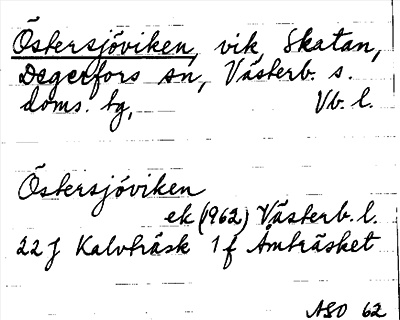 Östersjöviken, vik Skatan,
Degerfors sn, Västerb. s.
doms. tg, Vb. l.
Östersjöviken
ek (1962) Västerb. l.
22 J Kalvträsk 1 f Åmträsket
ASO 62